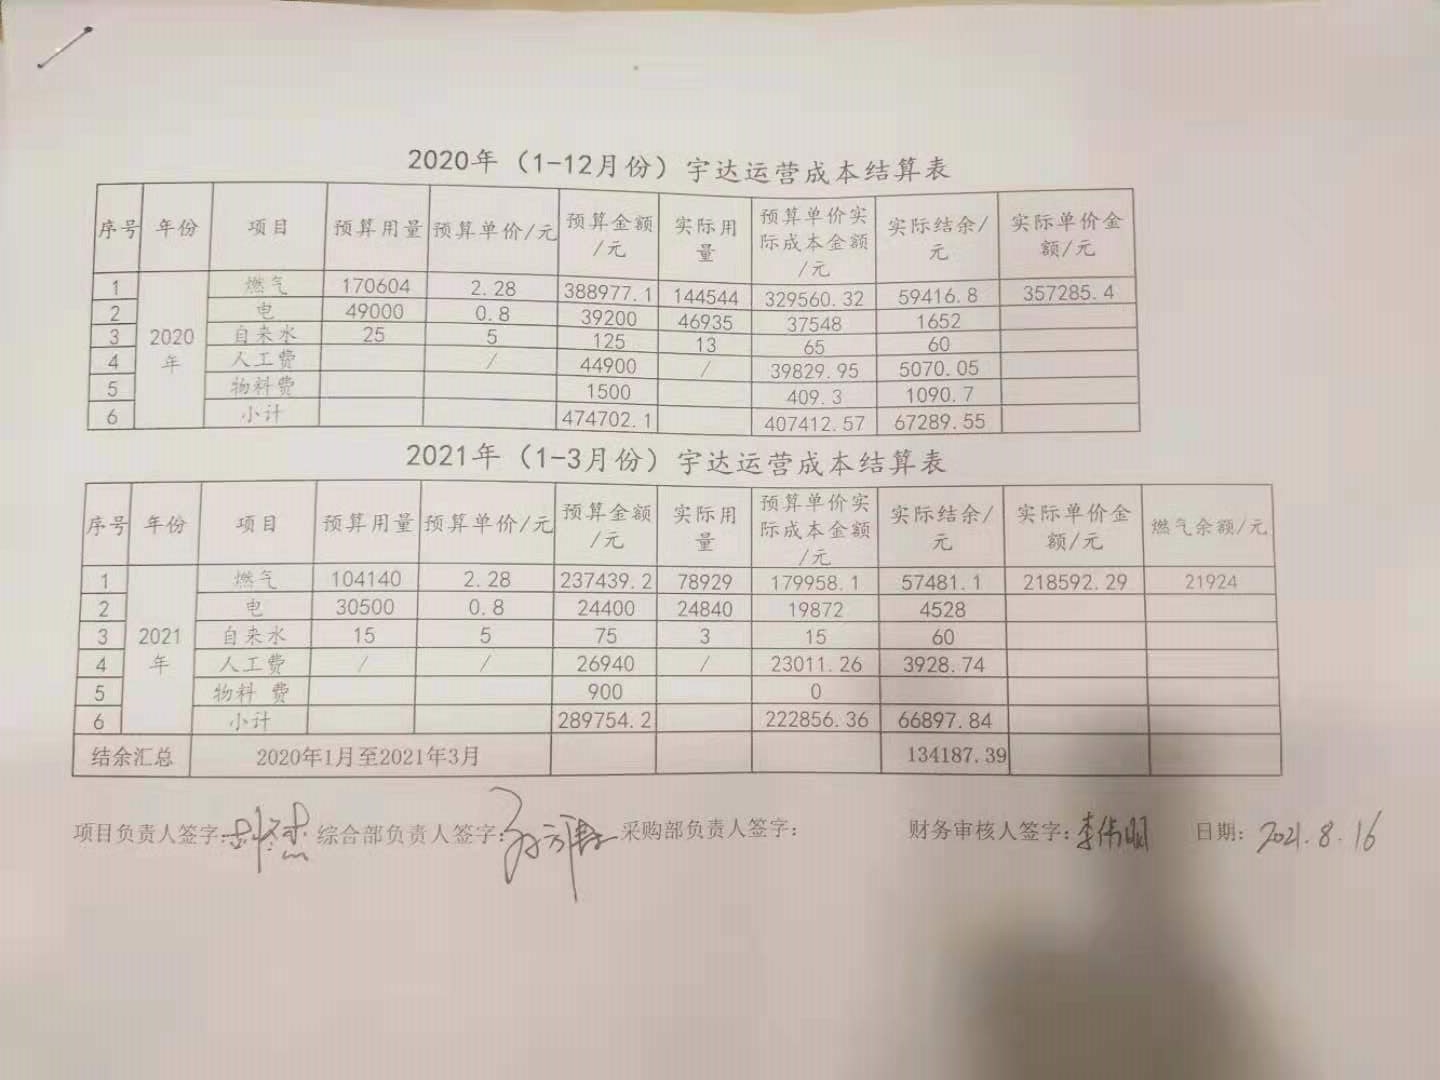 2020年（1-12月份）宇达运营成本结算表
序号 年份 项目 预算用量 预算单价/元 预算金额/元 实际用量 预算单价实际成本金额/元 实际结余/元 实际单价金额/元
1 2020年 燃气 170604 2.28 388977.1 144544 329560.32 59416.8 357285.4
2 电 49000 0.8 39200 46935 37548 1652
3 自来水 25 5 125 13 65 60
4 人工费 / 44900 / 39829.95 5070.05
5 物料费 1500 409.3 1090.7
6 小计 474702.1 407412.57 67289.55
2021年（1-3月份）宇达运营成本结算表
序号 年份 项目 预算用量 预算单价/元 预算金额/元 实际用量 预算单价实际成本金额/元 实际结余/元 实际单价金额/元 燃气余额/元
1 2021年 燃气 104140 2.28 237439.2 78929 179958.1 57481.1 218592.29 21924
2 电 30500 0.8 24400 24840 19872 4528
3 自来水 15 5 75 3 15 60
4 人工费 / / 26940 / 23011.26 3928.74
5 物料 费 900 0
6 小计 289754.2 222856.36 66897.84
结余汇总 2020年1月至2021年3月 134187.39
项目负责人签字: 综合部负责人签字: 采购部负责人签字: 财务审核人签字: 李伟明 日期: 2021.8.16